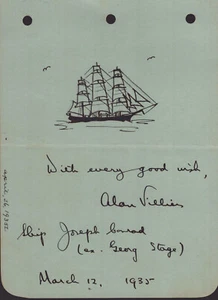 With every good wish,
Alan Villiers
Ship Joseph Conrad
(ex. Georg Stage)
March 12, 1935